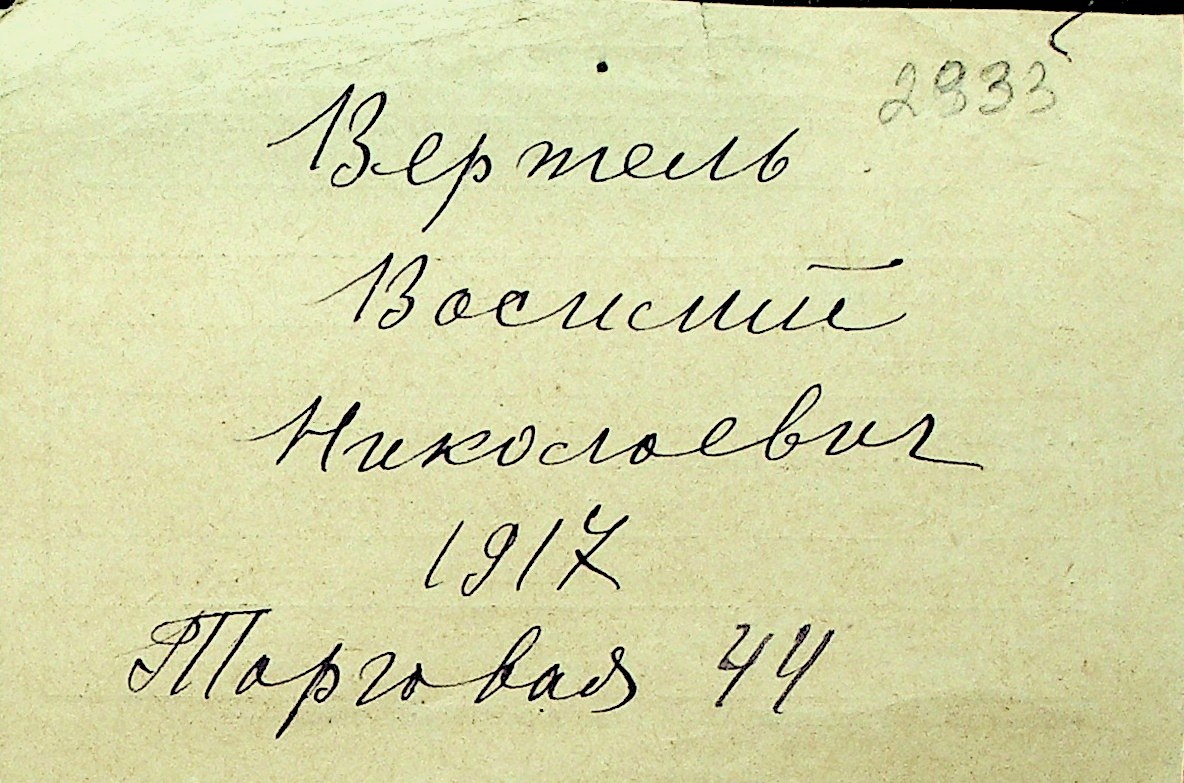 2933
Вертель
Василий
Николаевич
1917
Торговая 44